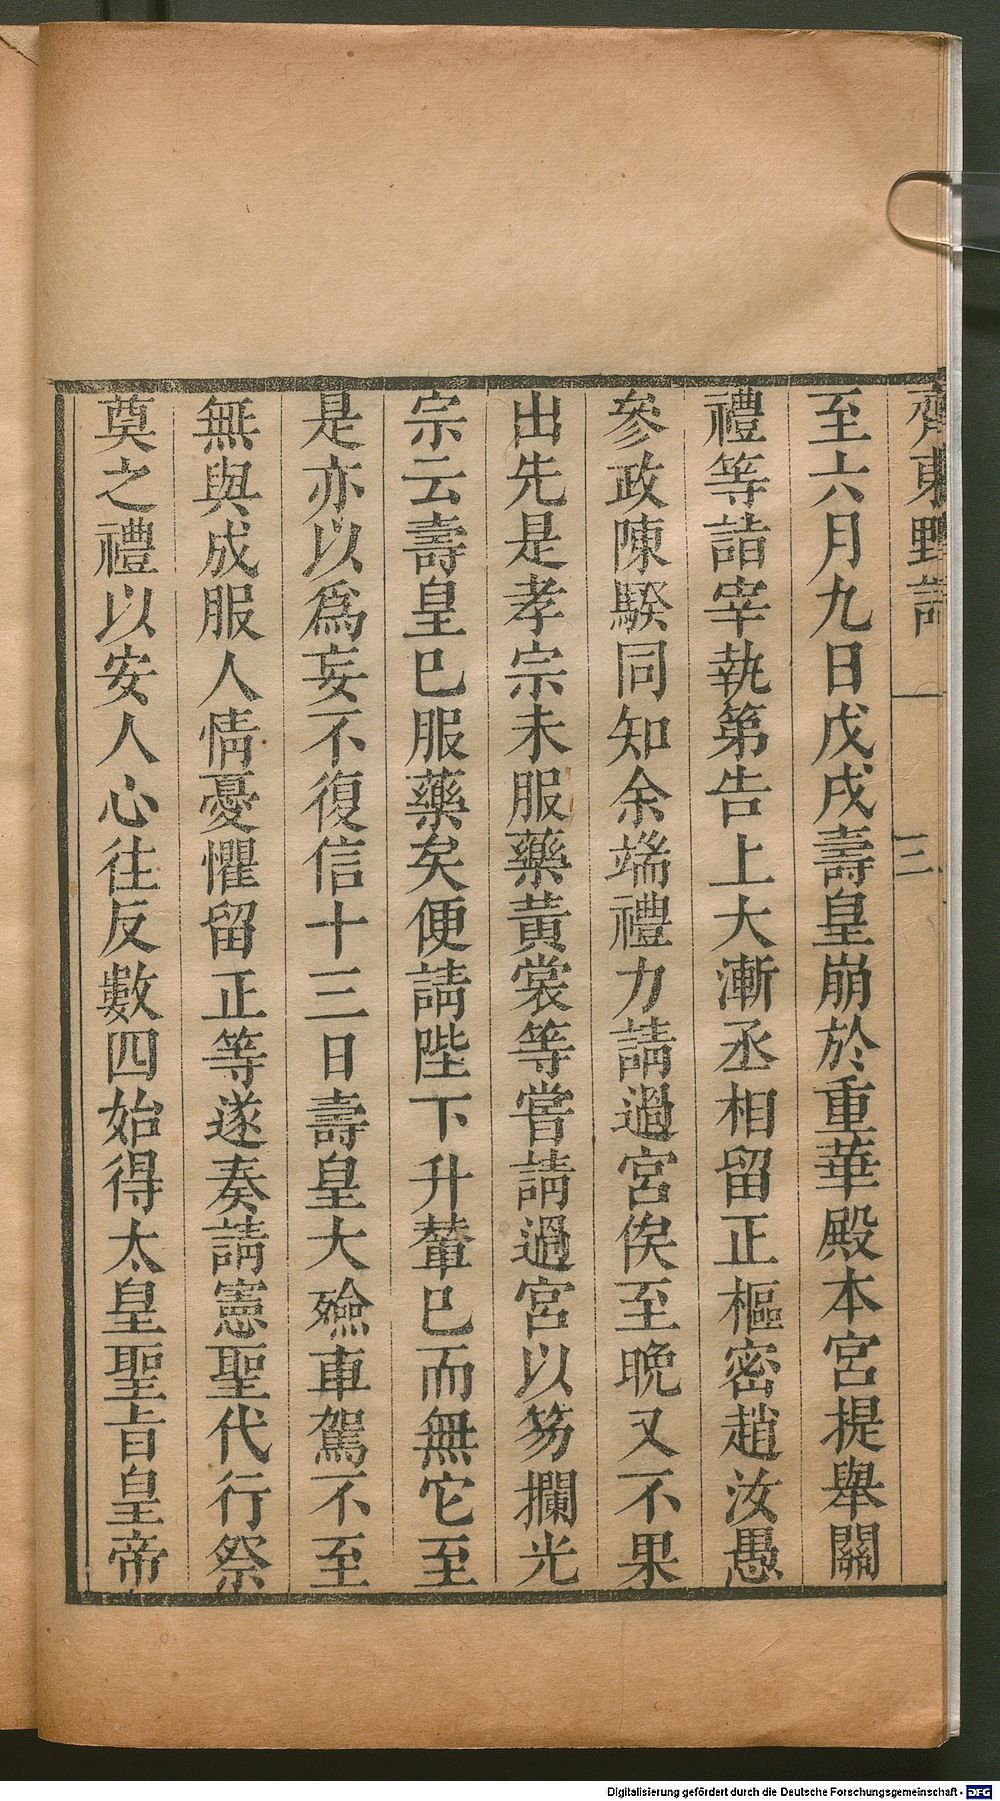 齊東野語
三
至六月九日戊戌壽皇崩於重華殿本宮提舉關
禮等詣宰執第告上大漸丞相留正樞密趙汝愚
參政陳騤同知余端禮力請過宮俟至晚又不果
出先是孝宗未服藥黃裳等嘗請過宮以笏攔光
宗云壽皇已服藥矣便請陛下升輦已而無它至
是亦以為妄不復信十三日壽皇大殮車駕不至
無與成服人情憂懼留正等遂奏請憲聖代行祭
奠之禮以安人心往反數四始得太皇聖旨皇帝
Digitalisierung gefördert durch die Deutsche Forschungsgemeinschaft - DFG